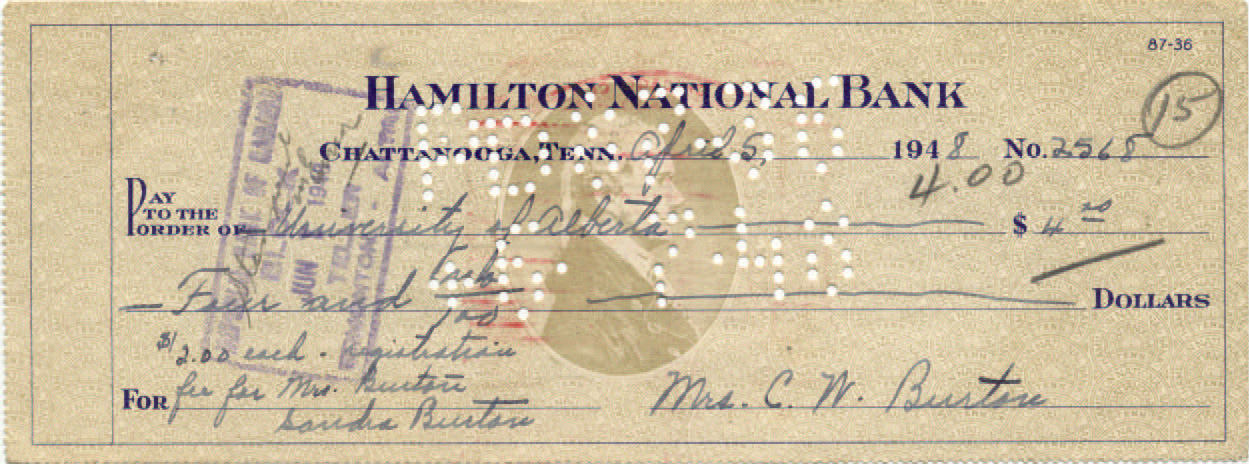 87-36
HAMILTON NATIONAL BANK
15
CHATTANOOGA, TENN. April 5, 1948 No. 2568
4.00
PAY TO THE ORDER OF University of Alberta $ 4 00
Four and no/100 DOLLARS
$2.00 each - registration
FOR fee for Mrs. Burton
Sandra Burton
Mrs. C. W. Burton
JUN 1948
TELLER